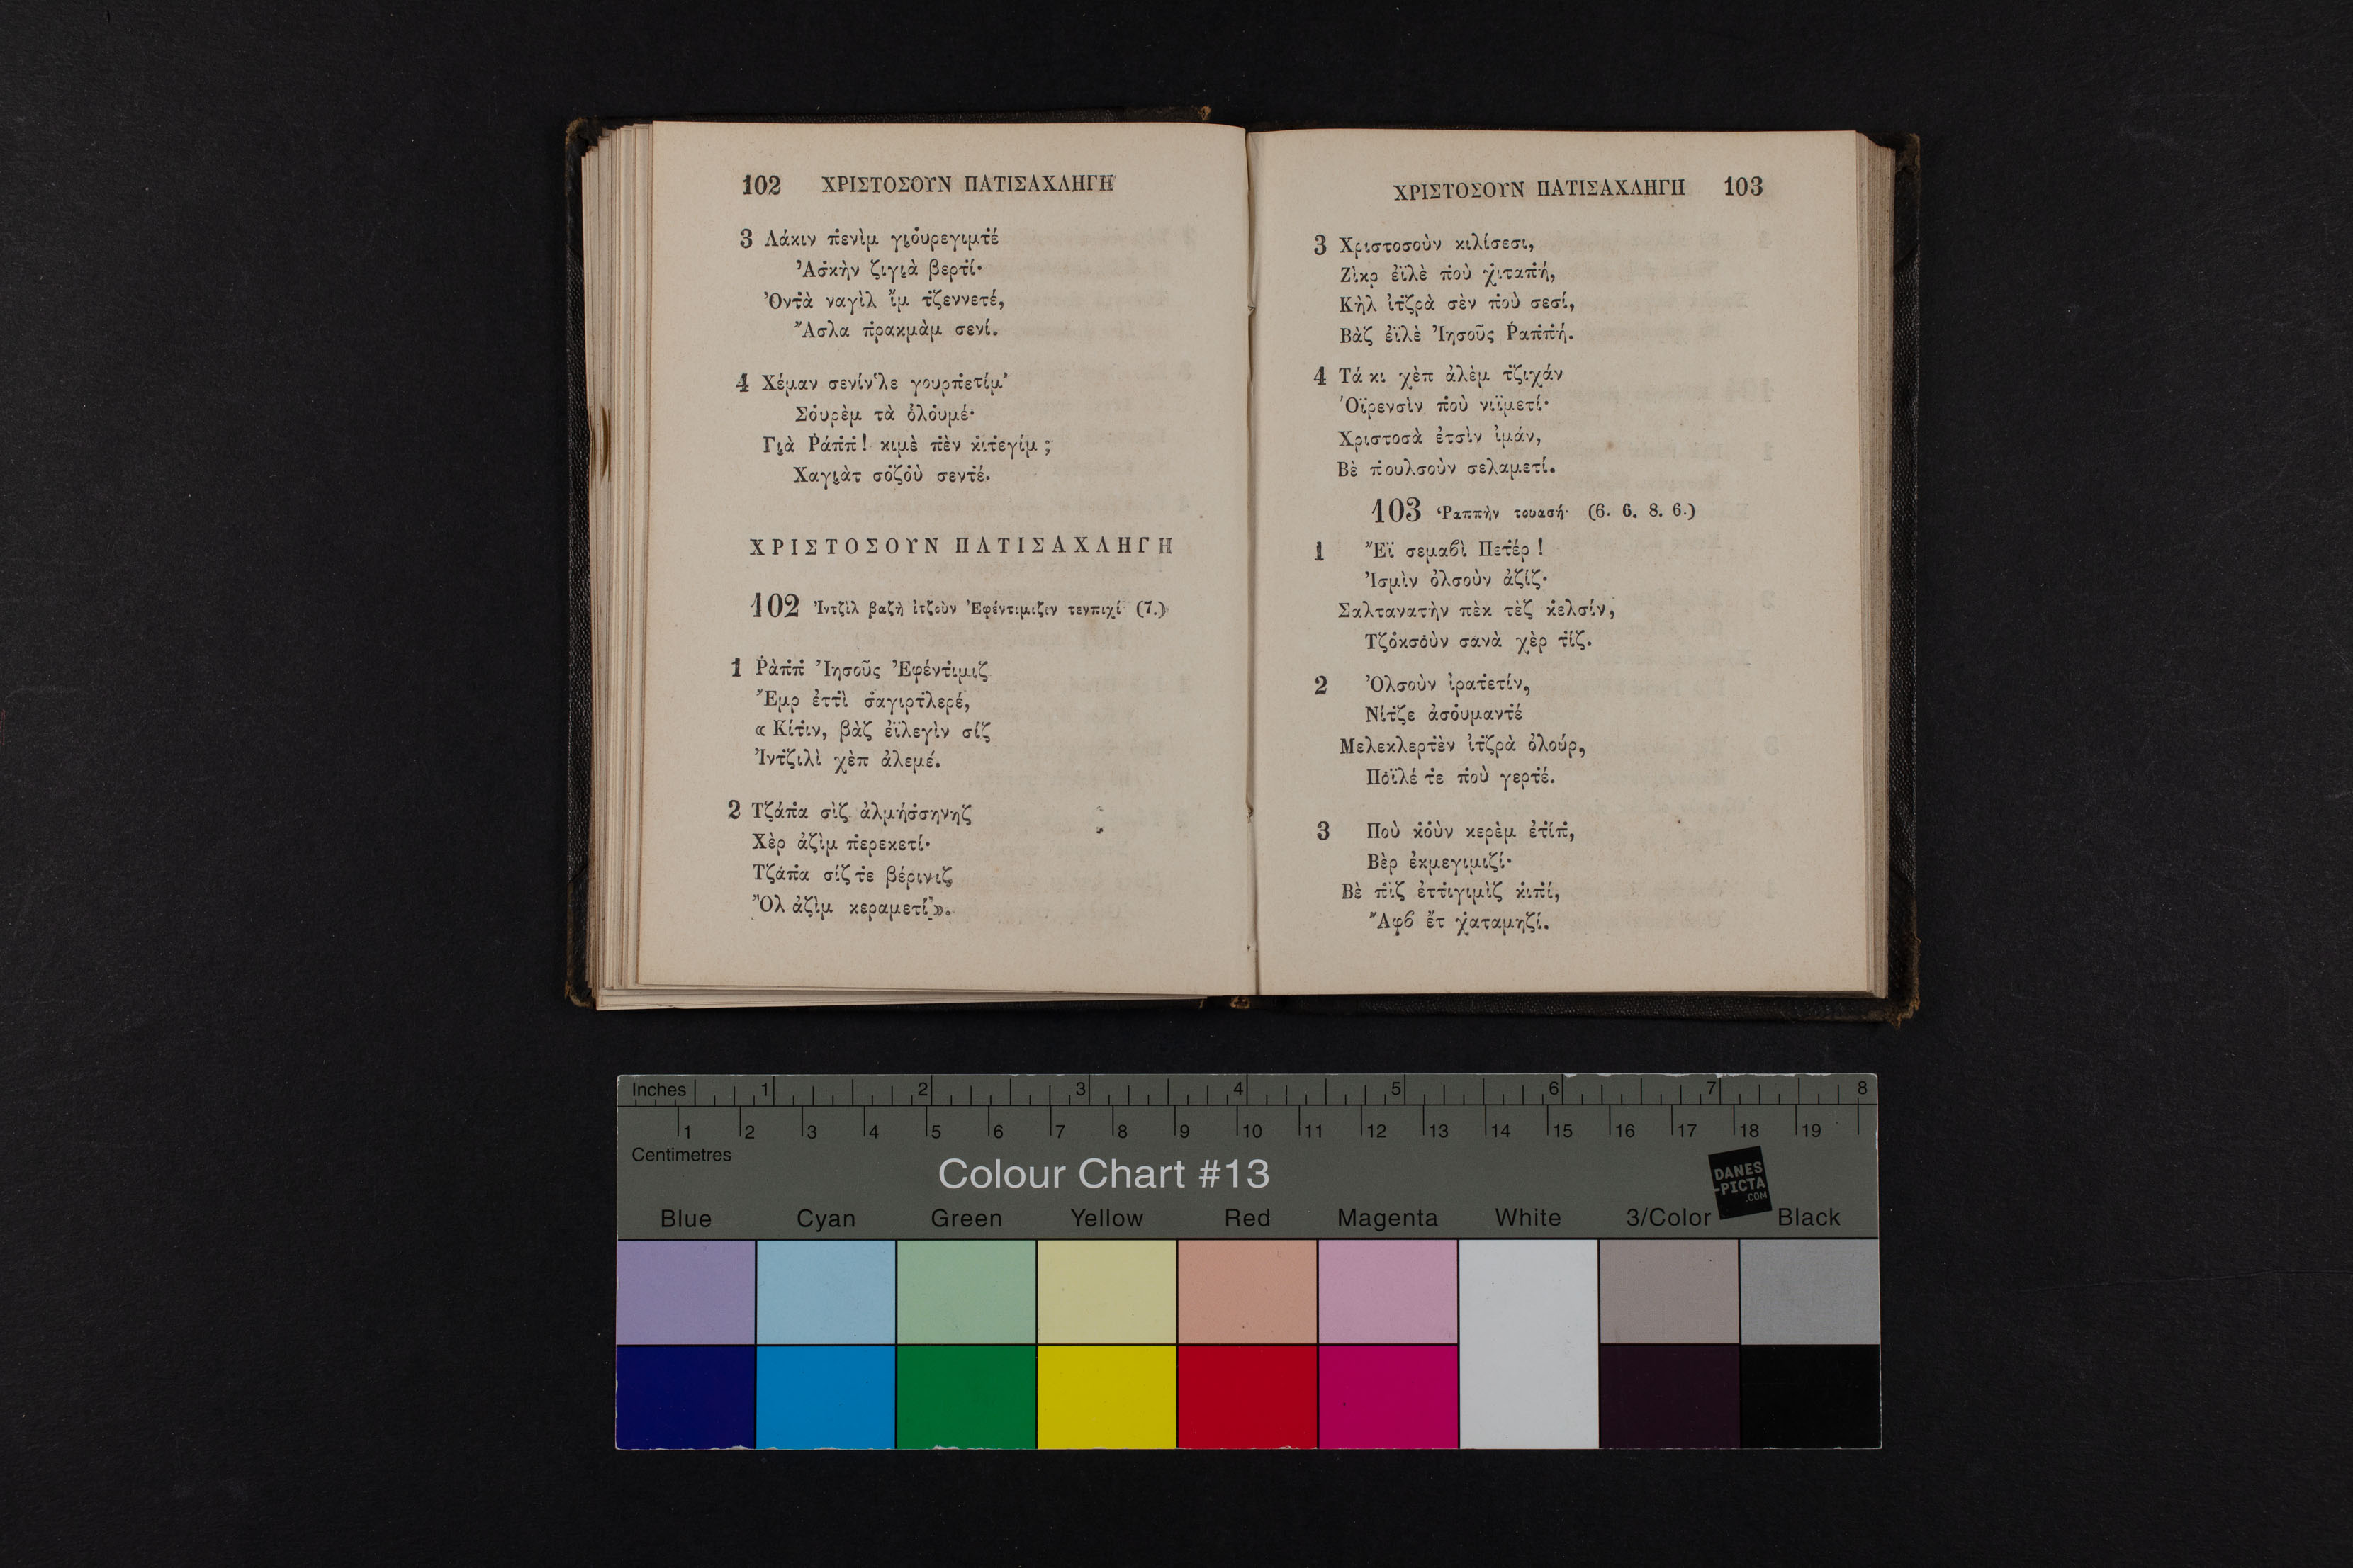 102 ΧΡΙΣΤΟΣΟΥΝ ΠΑΤΙΣΑΧΛΗΓΗ
3 Λάκιν π̇ενὶμ γι̯ὀυρεγιμτ̇έ
Ἀσ̇κὴν ζιγι̯ὰ βερτ̇ί·
Ὀντ̇ὰ ναγὶλ ἴμ τ̇ζεννετέ,
Ἄσλα π̇ρακμὰμ σενί.
4 Χέμαν σενίν'λε γουρπ̇ετίμ'
Σο̇υρὲμ τὰ ὀλο̇υμέ·
Γι̯ὰ Ῥάπ̇π̇! κιμὲ π̇ὲν κ̇ιτ̇εγίμ ;
Χαγι̯ὰτ σο̇ζο̇ὺ σεντ̇έ.
ΧΡΙΣΤΟΣΟΥΝ ΠΑΤΙΣΑΧΛΗΓΗ
102 Ἰντζὶλ βαζὴ ἰτζοὺν Ἐφέντιμιζιν τενπιχί (7.)
1 Ῥὰπ̇π̇ Ἰησοῦς Ἐφέντ̇ιμιζ
Ἔμρ ἐττὶ σ̇αγιρτ̇λερέ,
« Κίτ̇ιν, βὰζ ἐϊλεγὶν σίζ
Ἰντ̇ζιλὶ χὲπ ἀλεμέ.
2 Τζάπ̇α σὶζ ἀλμήσ̇σηνηζ
Χὲρ ἀζὶμ π̇ερεκετί·
Τζάπ̇α σίζ τ̇ε βέρινιζ
Ὂλ ἀζὶμ κεραμετί ».
ΧΡΙΣΤΟΣΟΥΝ ΠΑΤΙΣΑΧΛΗΓΗ 103
3 Χριστοσοὺν κιλίσεσι,
Ζὶκρ ἐϊλὲ π̇οὺ χ̇ιταπ̇ή,
Κὴλ ἰτ̇ζρὰ σὲν π̇οὺ σεσί,
Βὰζ ἐϊλὲ Ἰησοῦς Ῥαπ̇π̇ή.
4 Τά κι χὲπ ἀλὲμ τ̇ζιχάν
Ὀϊρενσὶν π̇οὺ νιϊμετί·
Χριστοσὰ ἐτσὶν ἰμάν,
Βὲ π̇ουλσοὺν σελαμετί.
103 Ῥαππὴν τουασή· (6. 6. 8. 6.)
1 Ἔϊ σεμαϐὶ Πετ̇έρ !
Ἰσμὶν ὀλσοὺν ἀζίζ·
Σαλτανατὴν πὲκ τὲζ κ̇ελσίν,
Τζο̇κσο̇ὺν σανὰ χὲρ τ̇ίζ.
2 Ὀλσοὺν ἰρατ̇ετίν,
Νίτ̇ζε ἀσο̇υμαντ̇έ
Μελεκλερτ̇ὲν ἰτ̇ζρὰ ὀλούρ,
Πο̇ϊλέ τ̇ε π̇οὺ γερτ̇έ.
3 Ποὺ κ̇ο̇ὺν κερὲμ ἐτ̇ίπ̇,
Βὲρ ἐκμεγιμιζί·
Βὲ π̇ὶζ ἐττ̇ιγιμὶζ κ̇ιπ̇ί,
Ἄφϐ ἔτ χ̇αταμηζί.
Inches 1 2 3 4 5 6 7 8
1 2 3 4 5 6 7 8 9 10 11 12 13 14 15 16 17 18 19
Centimetres
Colour Chart #13
DANES
-PICTA
.COM
Blue Cyan Green Yellow Red Magenta White 3/Color Black